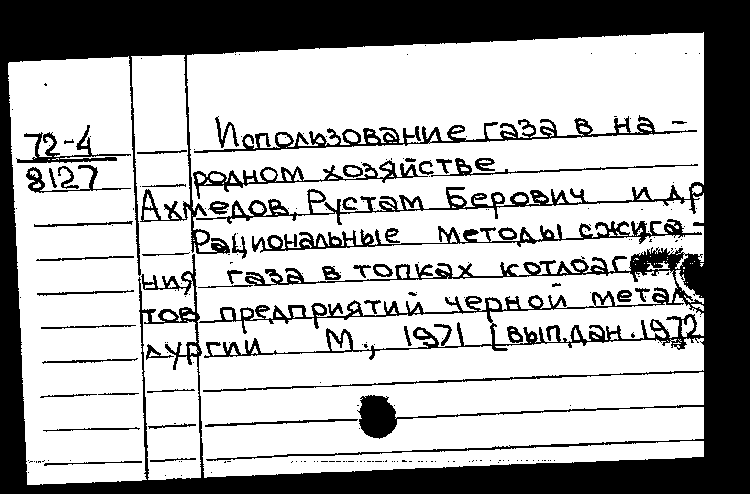 72-4
8127
Использование газа в на-
родном хозяйстве.
Ахмедов, Рустам Берович и др
Рациональные методы сжига-
ния газа в топках котлоагр
тов предприятий черной метал
лургии. М., 1971 [вып.дан.1972